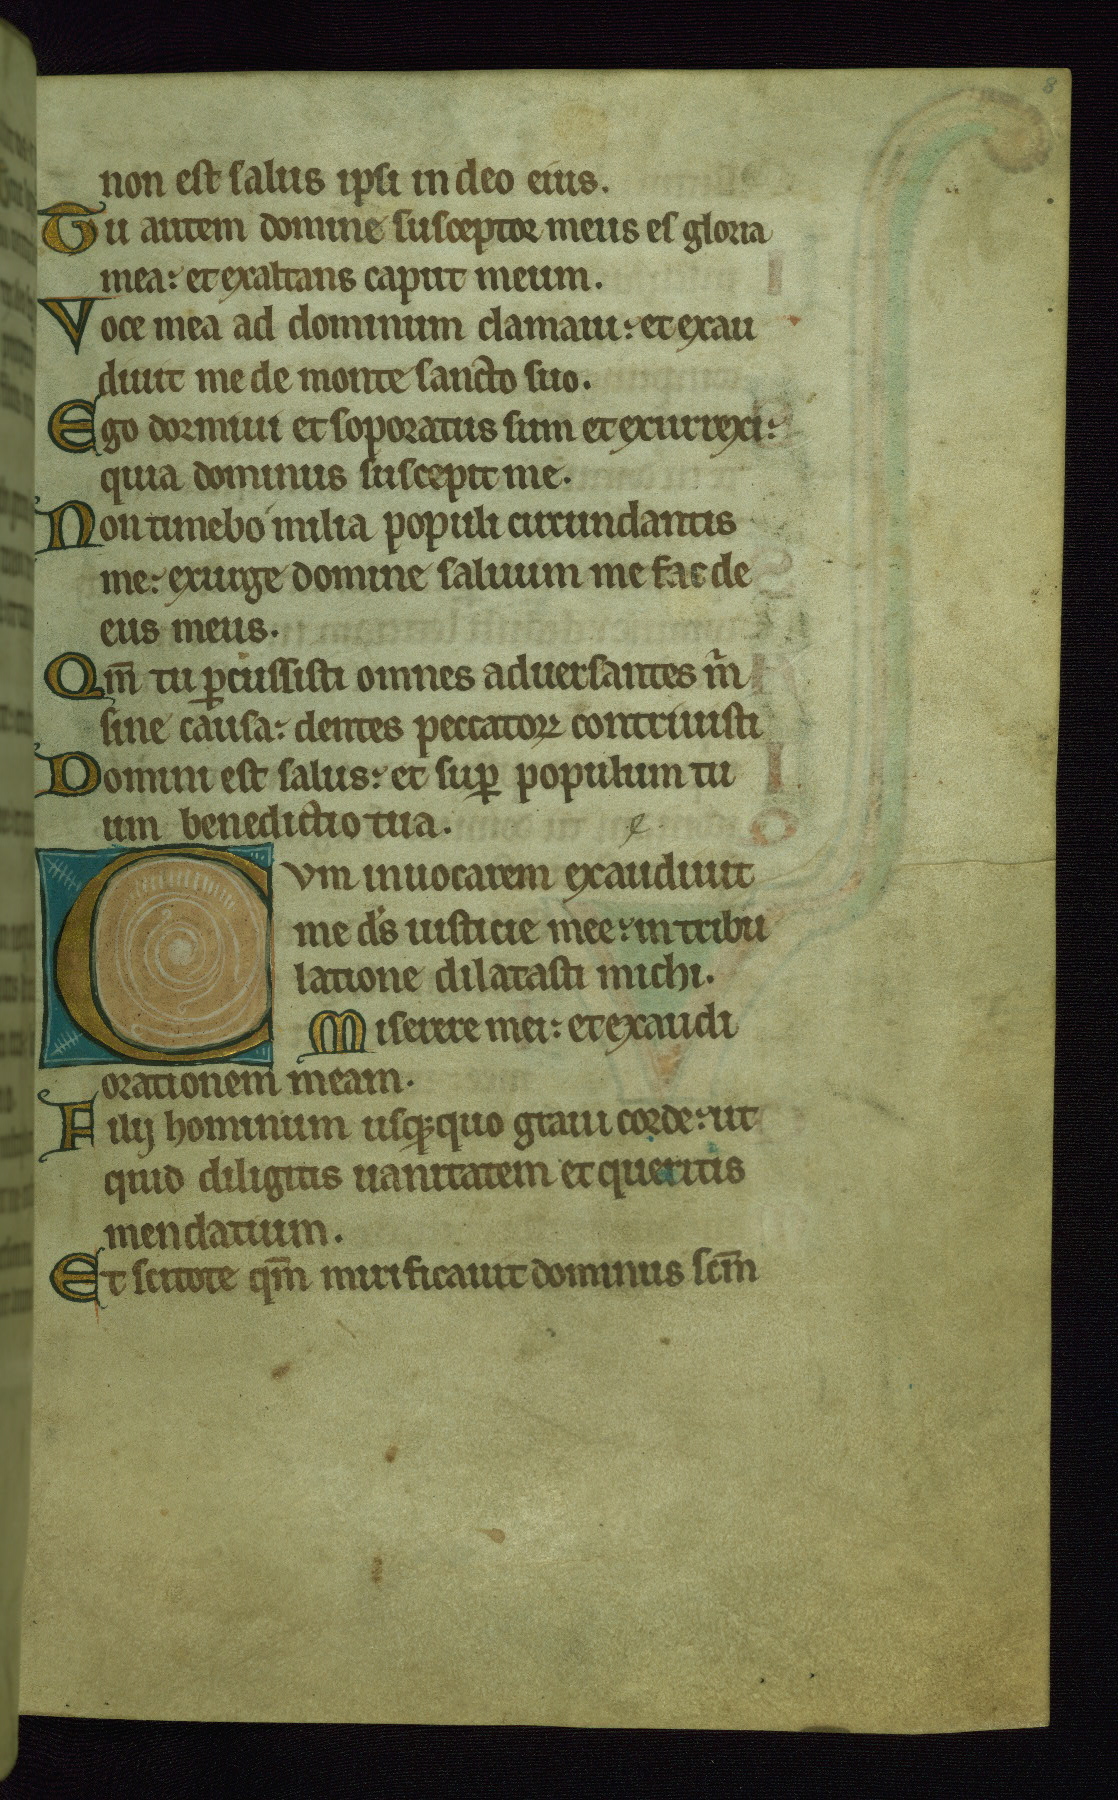 8
non est salus ipsi in deo eius.
Tu autem domine susceptor meus es gloria
mea: et exaltans caput meum.
Voce mea ad dominum clamaui: et exau
diuit me de monte sancto suo.
Ego dormiui et soporatus sum et exurrexi:
quia dominus suscepit me.
Non timebo milia populi circundantis
me: exurge domine saluum me fac de
eus meus.
Qm̄ tu ꝑcussisti omnes aduersantes m̄
sine causa: dentes peccatoꝝ contriuisti
Domini est salus: et suꝑ populum tu
um benedictio tua.
Cvm inuocarem exaudiuit
me ds̄ iusticie mee: in tribu
latione dilatasti michi.
Miserere mei: et exaudi
orationem meam.
Filij hominum usqꝫquo graui corde: ut
quid diligitis uanitatem et queritis
mendatium.
Et scitote qm̄ mirificauit dominus scm̄